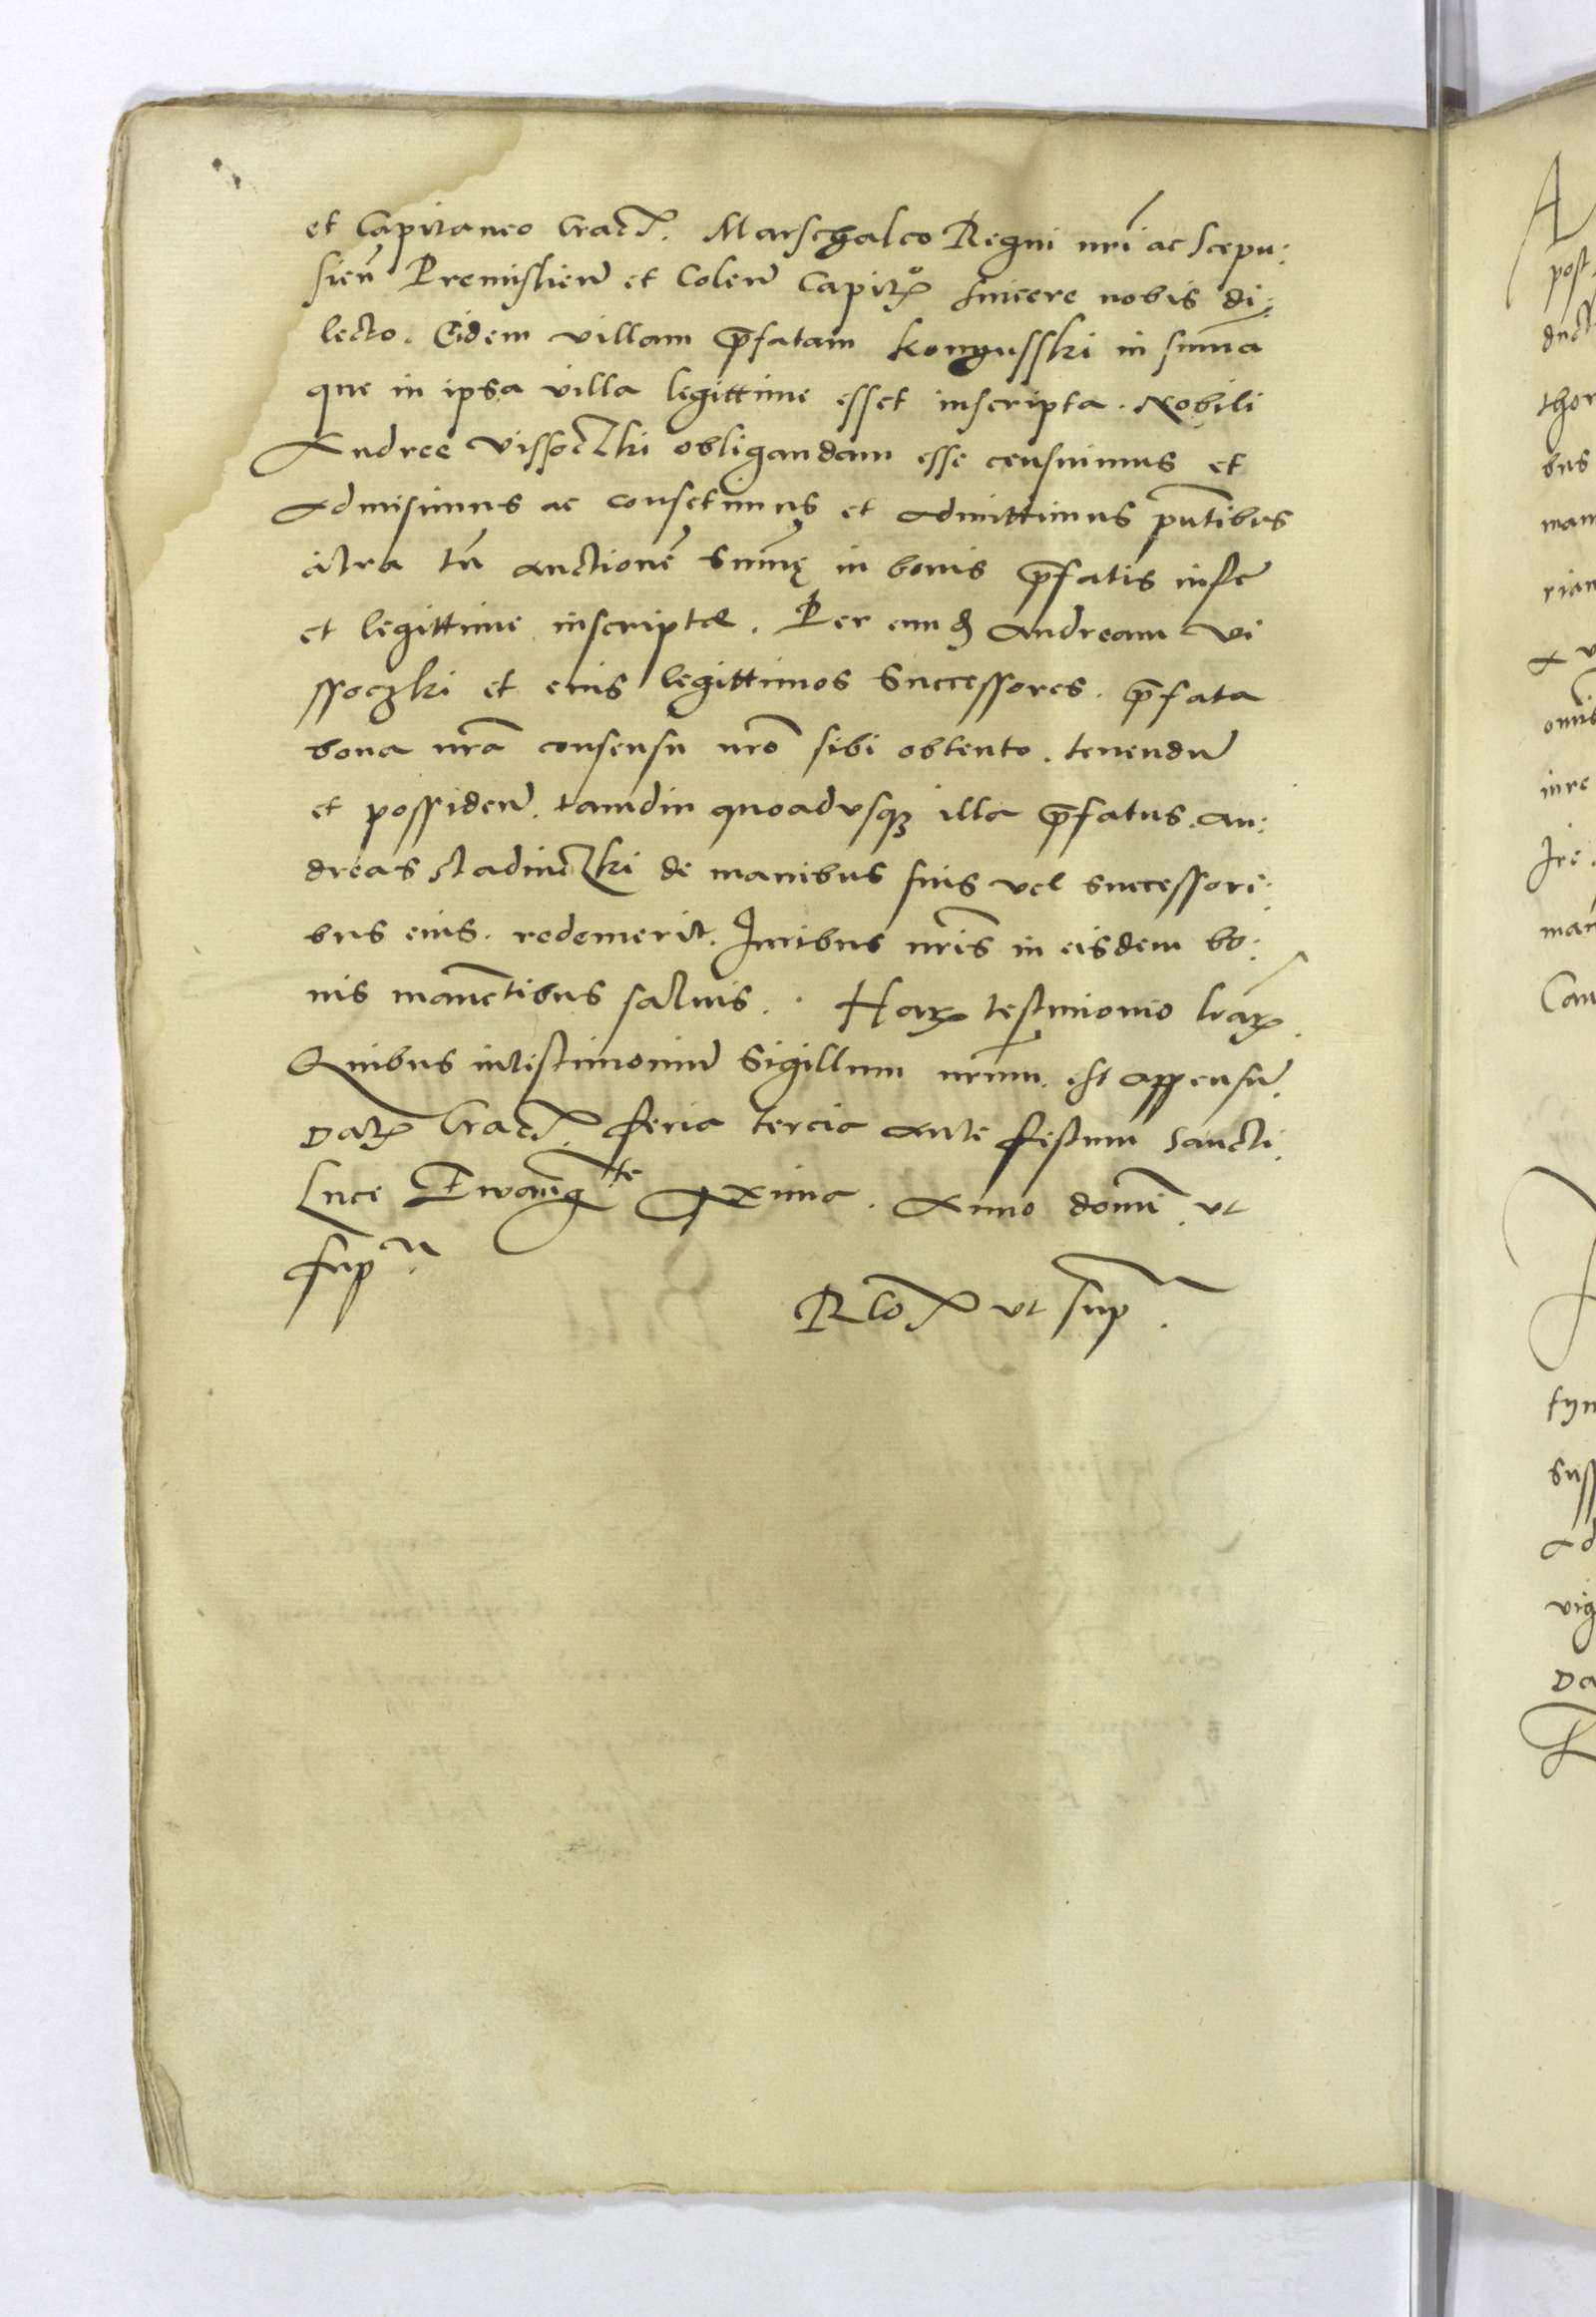 et Capitaneo Crac. Marschalco Regni nrī ac Scepu:
sieñ Premislień et Coleń Capitꝫͦ sincere nobis di:
lecto. Eidem villam p̄fatam Kongusski in sum̄a
que in ipsa villa legittime esset inscripta. Nobili
Andree Vissoczki obligandam esse censuimus et
admisimus ac consetimus et admittimus pn̄tibus
citra tn̄ auctionē Sum̄ę in bonis p̄fatis iuste
et legittime inscriptæ. Per eundē Andream Vi
ssoczki et eius legittimos Successores. p̄fata
bona nrā consensu nrō sibi obtento. tenendū
et possidendū. tamdiu quoadusqꝫ illa p̄fatus. An:
dreas Stadniczki de manibus suis vel successori:
bus eius. redemerit. Iuribus nrīs in eisdem bo:
nis manētibus saluis. Harꝝ testimonio lrāꝝ.
Quibus intestimoniū Sigillum nrūm. est appensū.
Datꝝ Crac. feria tercia ante festum Sancti.
Luce Ewāngᵗᵉ proxima. Anno domī. ut
supᵃ.
Rlōꝝ ut supᵃ.
A
post
thor
bus
mam
rian
inre
Cam
Sus
ad
vig
Da